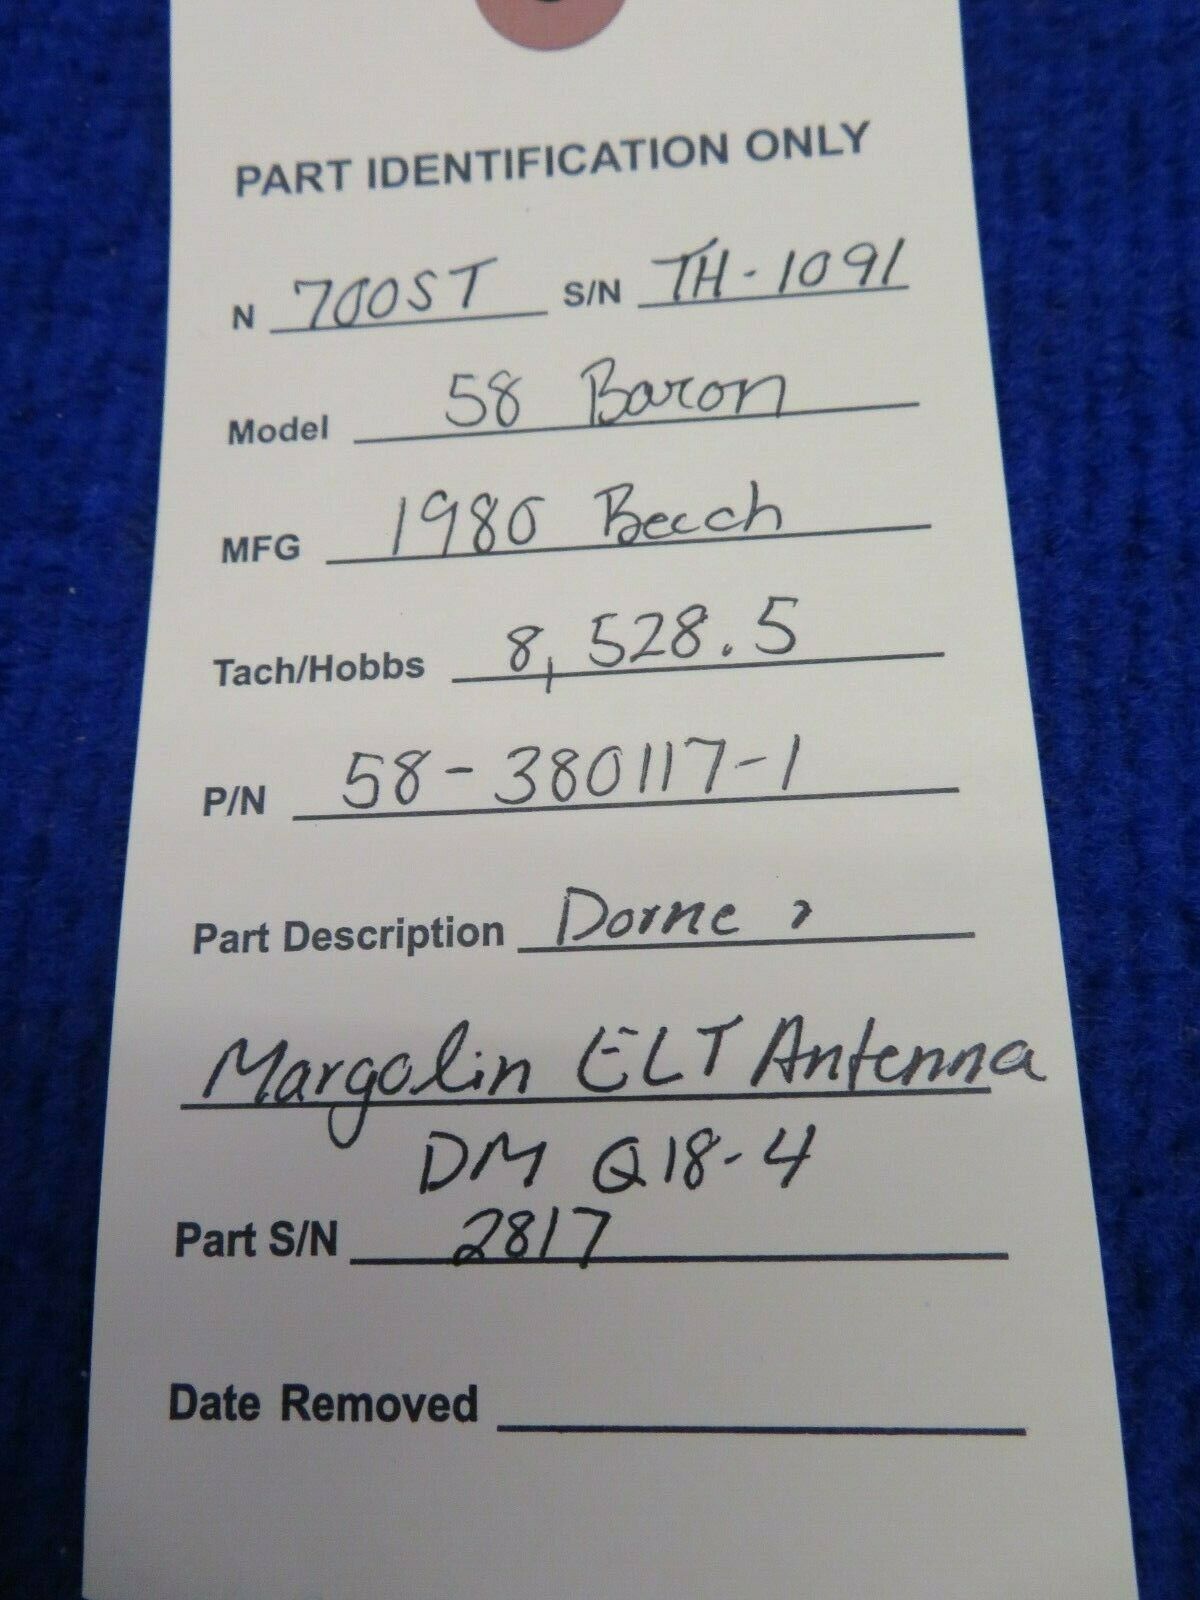 PART IDENTIFICATION ONLY
N 700ST S/N TH-1091
Model 58 Baron
MFG 1980 Beech
Tach/Hobbs 8,528.5
P/N 58-380117-1
Part Description Dorne
Margolin ELT Antenna
DM Q18-4
Part S/N 2817
Date Removed